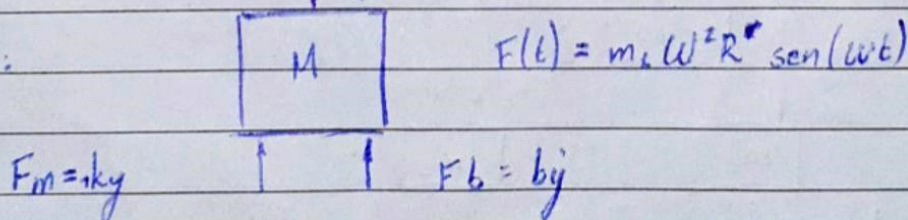 M
F(t) = m₁ W²R sen(wt)
Fm = ky
Fb = bẏ